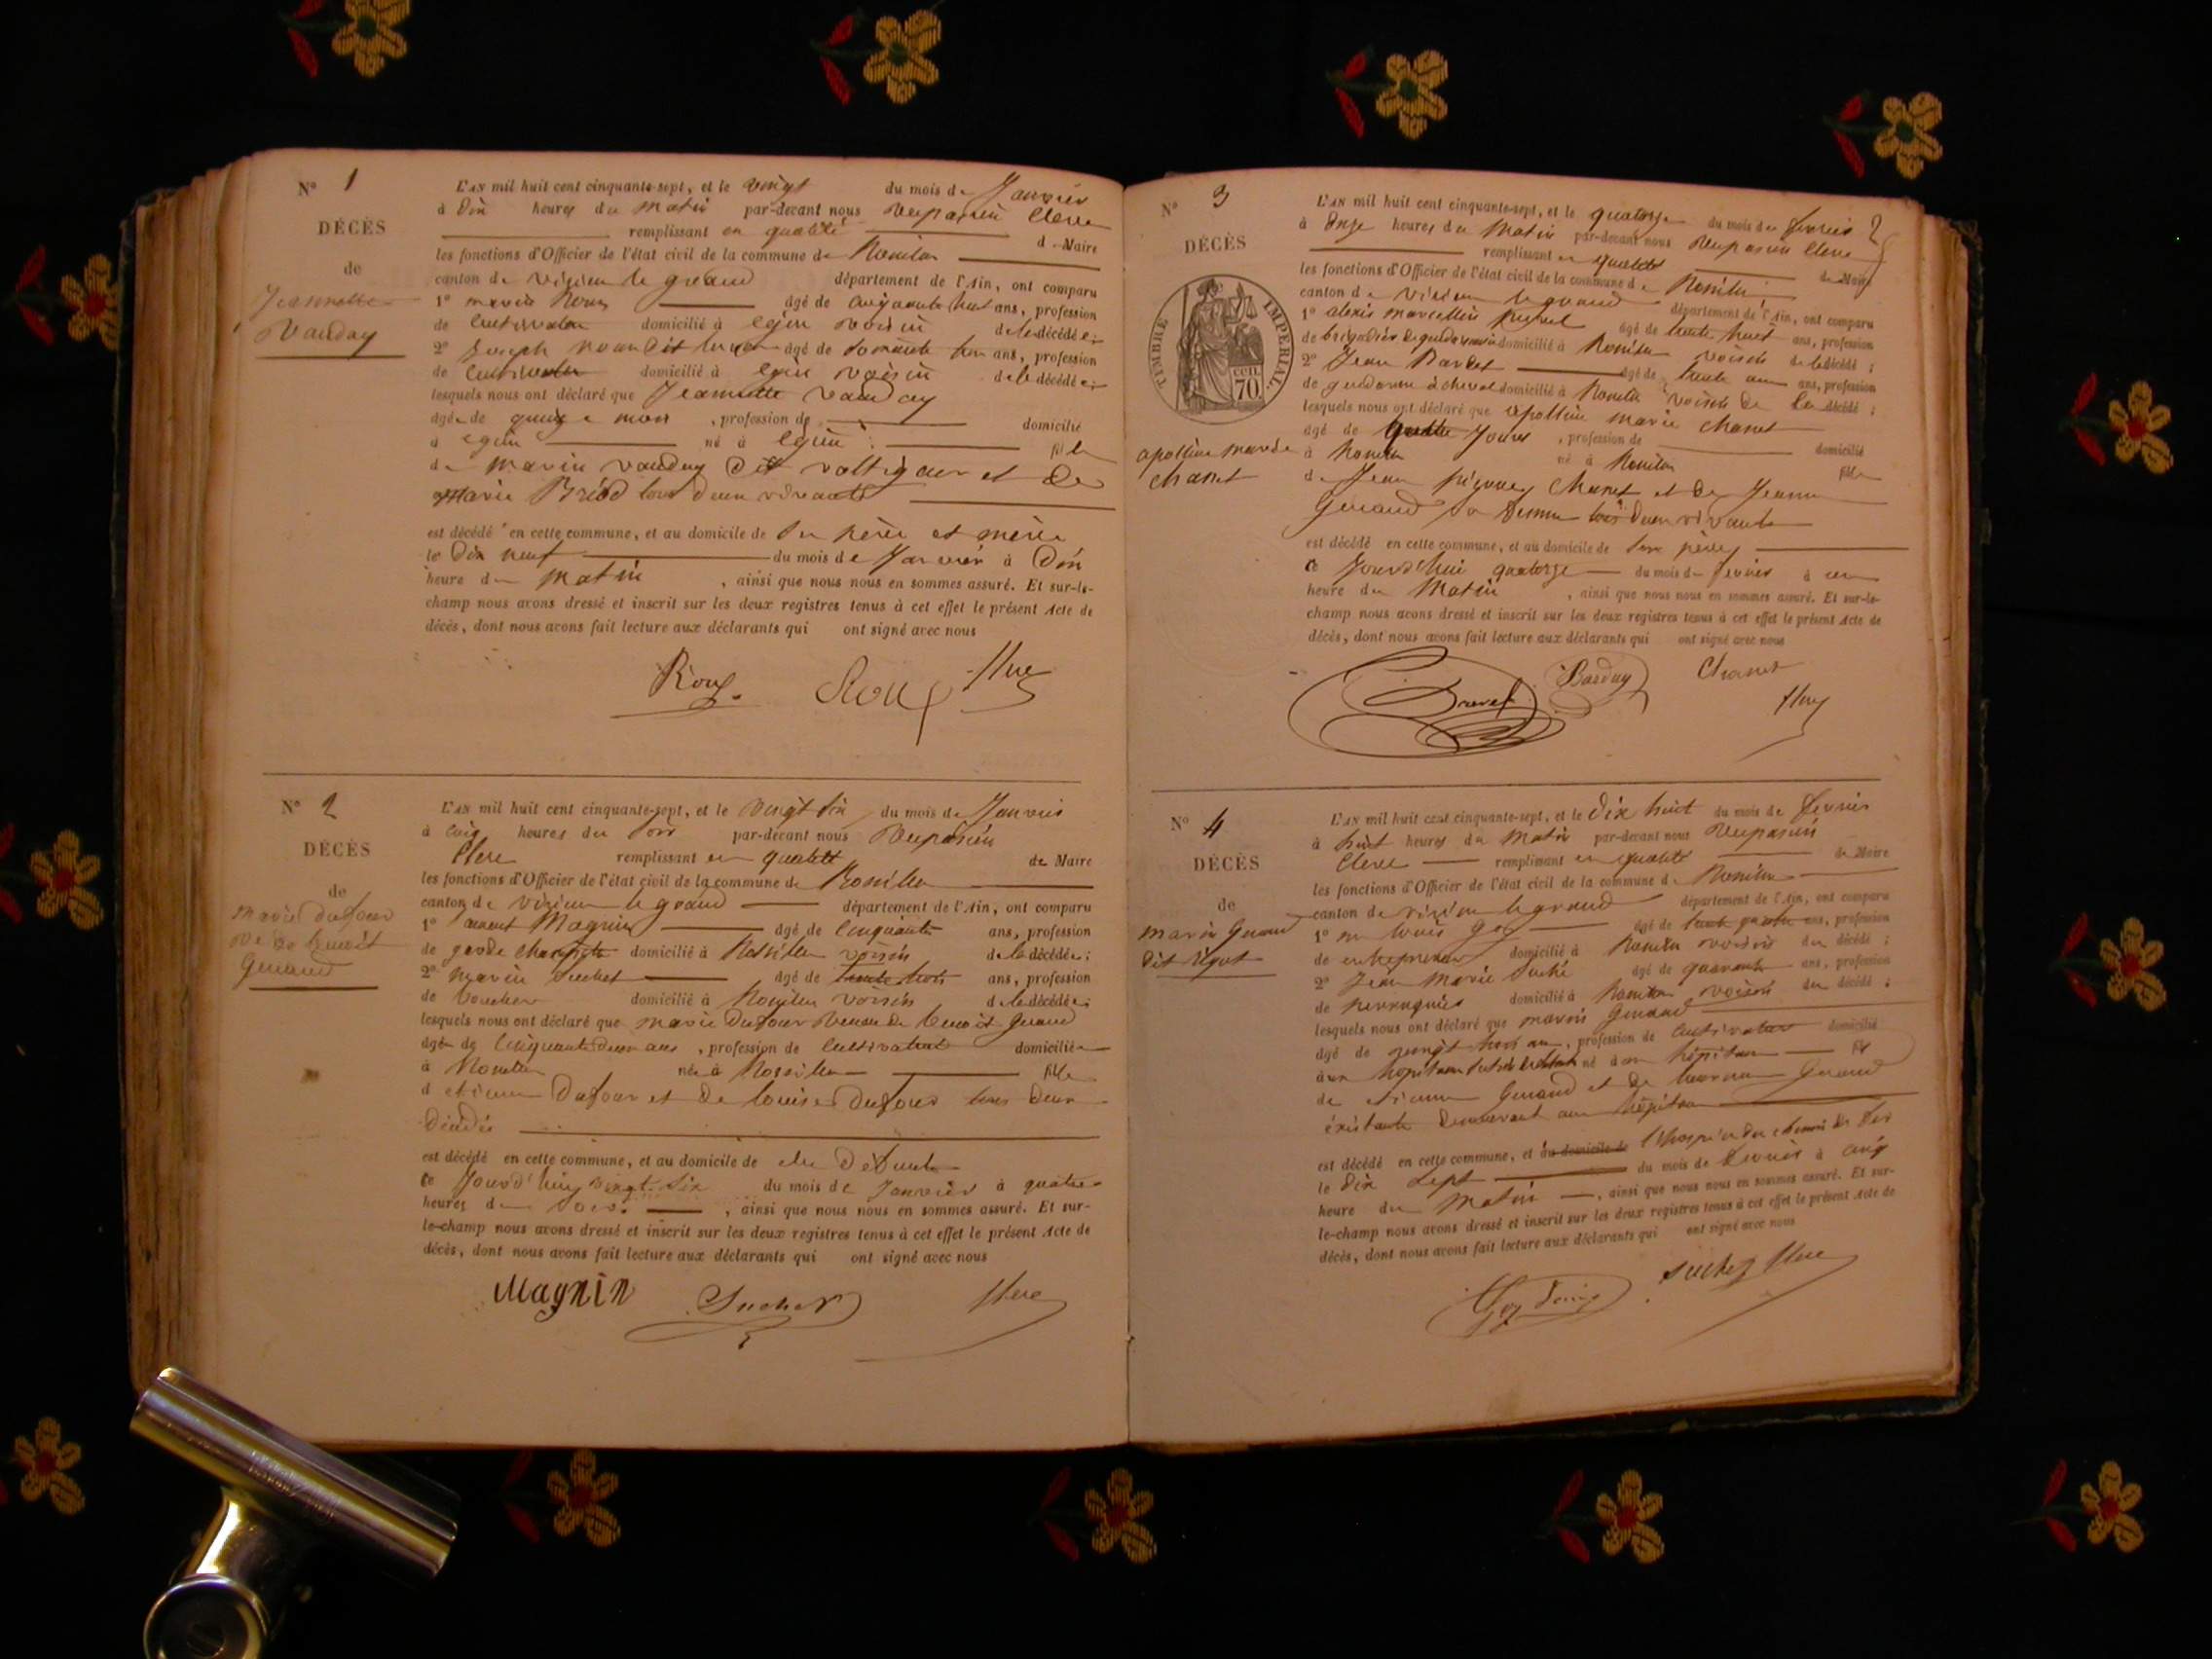 N° 1
DÉCÈS
de
Jeannette
Vauday
L'AN mil huit cent cinquante-sept, et le vingt du mois de Janvier
à dix heures du matin par-devant nous Vespasien Clerc
remplissant en qualité de Maire
les fonctions d'Officier de l'état civil de la commune de
canton de virieu le grand département de l'Ain, ont comparu
1° marin Roux âgé de cinquante huit ans, profession
de cultivateur domicilié à egieu voisin de la décédée;
2° Joseph roux dit âgé de ans, profession
de cultivateur domicilié à egieu voisin de la décédée;
lesquels nous ont déclaré que Jeannette vauday
âgée de quinze mois, profession de domicilié
à egieu né à egieu fille
de marin vauday dit voltigeur et de
marie tous deux vivants
est décédé en cette commune, et au domicile de ses père et mère
le dix neuf du mois de Janvier à dix
heure du matin, ainsi que nous nous en sommes assuré. Et sur-le-
champ nous avons dressé et inscrit sur les deux registres tenus à cet effet le présent Acte de
décès, dont nous avons fait lecture aux déclarants qui ont signé avec nous
Roux Roux Clerc
N° 2
DÉCÈS
de
Marie Dufour
Ve de benoit
Guraud
L'AN mil huit cent cinquante-sept, et le vingt six du mois de Janvier
à cinq heures du soir par-devant nous Vespasien
Clerc remplissant en qualité de Maire
les fonctions d'Officier de l'état civil de la commune de
canton de virieu le grand département de l'Ain, ont comparu
1° Laurent Magnin âgé de cinquante ans, profession
de garde champêtre domicilié à voisin de la décédée;
2° marin suchet âgé de trente trois ans, profession
de boucher domicilié à voisin de la décédée;
lesquels nous ont déclaré que marie Dufour veuve de benoit Guraud
âgée de cinquante deux ans, profession de cultivateur domiciliée
à née à fille
d'etienne Dufour et de louise Dufour tous deux
décédés
est décédé en cette commune, et au domicile de la défunte
ce jourd'hui vingt six du mois de Janvier à quatre
heures du soir, ainsi que nous nous en sommes assuré. Et sur-
le-champ nous avons dressé et inscrit sur les deux registres tenus à cet effet le présent Acte de
décès, dont nous avons fait lecture aux déclarants qui ont signé avec nous
Magnin Suchet Clerc
N° 3
DÉCÈS
TIMBRE IMPÉRIAL
70
apolline marie
chanet
L'AN mil huit cent cinquante-sept, et le quatorze du mois de fevrier 2
à onze heures du matin par-devant nous Vespasien Clerc
remplissant en qualité de Maire
les fonctions d'Officier de l'état civil de la commune de
canton de virieu le grand département de l'Ain, ont comparu
1° alexis marcellin âgé de trente huit ans, profession
de brigadier de gendarmerie domicilié à voisin de la décédé;
2° Jean Bardet âgé de trente ans, profession
de gendarme à cheval domicilié à voisin de la décédé;
lesquels nous ont déclaré que apolline marie chanet
âgé de quatre jours, profession de domicilié
à né à fille
de Jean pierre chanet et de Jeanne
Guraud sa femme tous deux vivants
est décédé en cette commune, et au domicile de son père
ce jourd'hui quatorze du mois de fevrier à une
heure du matin, ainsi que nous nous en sommes assuré. Et sur-le-
champ nous avons dressé et inscrit sur les deux registres tenus à cet effet le présent Acte de
décès, dont nous avons fait lecture aux déclarants qui ont signé avec nous
Chanet
Clerc
N° 4
DÉCÈS
de
marin Guraud
dit
L'AN mil huit cent cinquante-sept, et le dix huit du mois de fevrier
à huit heures du matin par-devant nous Vespasien
Clerc remplissant en qualité de Maire
les fonctions d'Officier de l'état civil de la commune de
canton de virieu le grand département de l'Ain, ont comparu
1° louis Goy âgé de trente quatre ans, profession
de entrepreneur domicilié à voisin du décédé;
2° Jean Marie suchet âgé de quarante ans, profession
de perruquier domicilié à voisin du décédé;
lesquels nous ont déclaré que marin Guraud
âgé de vingt trois ans, profession de cultivateur domicilié
né fils
de etienne Guraud et de Guraud
est décédé en cette commune, et au domicile de
le dix sept du mois de fevrier à cinq
heure du matin, ainsi que nous nous en sommes assuré. Et sur-
le-champ nous avons dressé et inscrit sur les deux registres tenus à cet effet le présent Acte de
décès, dont nous avons fait lecture aux déclarants qui ont signé avec nous
Goy suchet Clerc